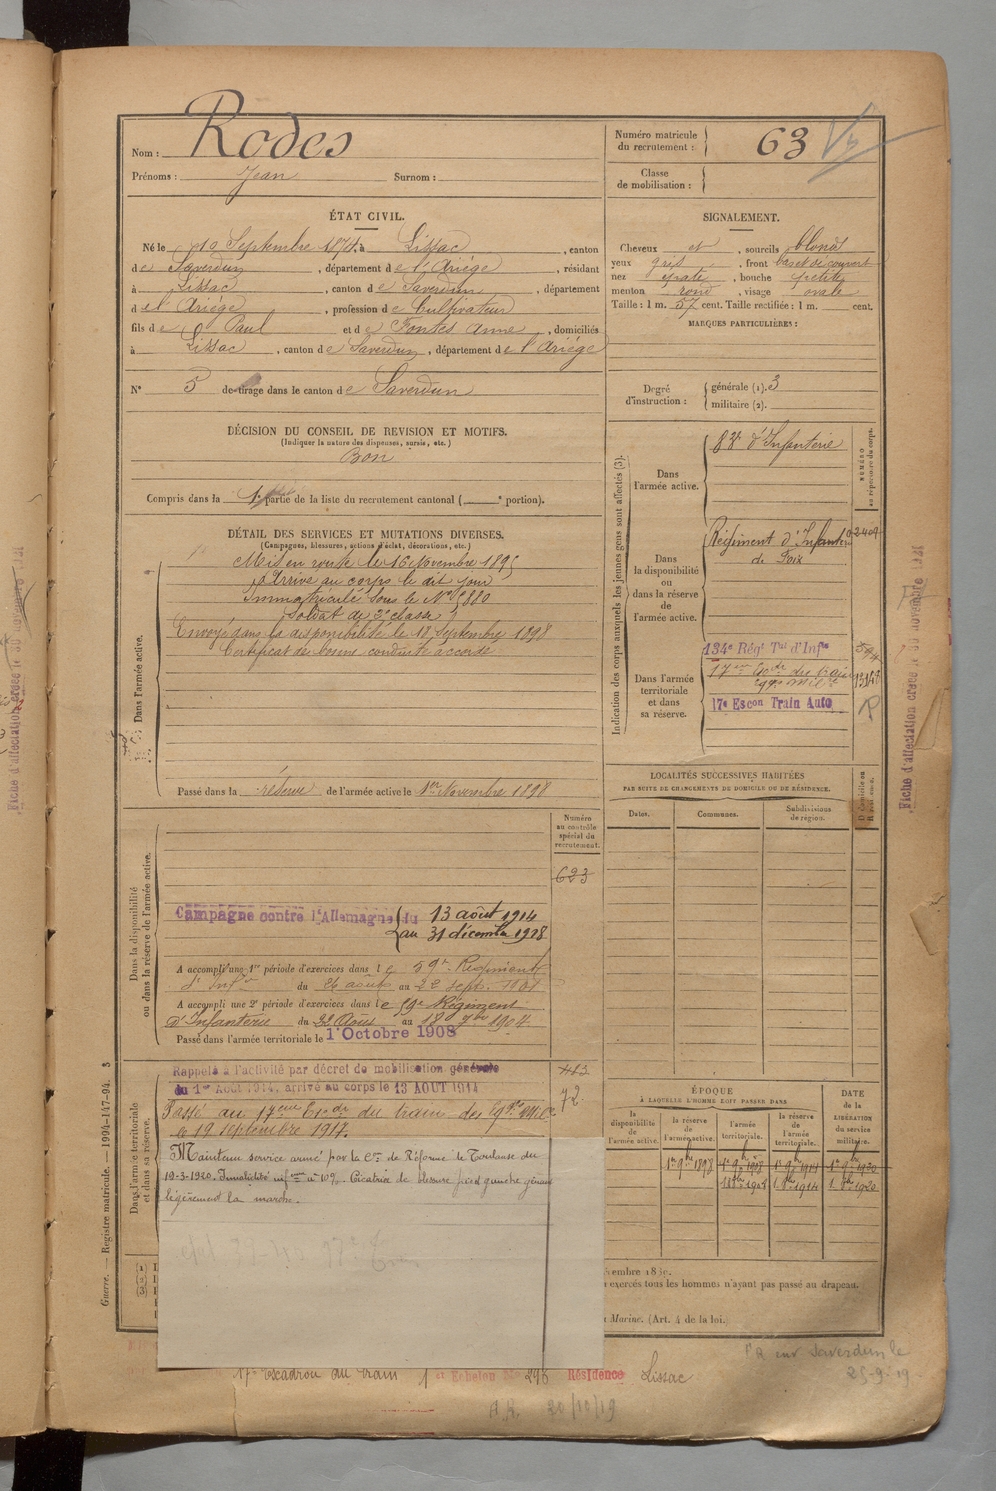 Nom : Rodes
Prénoms : Jean Surnom :
Numéro matricule du recrutement : 63
Classe de mobilisation :
ÉTAT CIVIL.
Né le 10 Septembre 1874, à Lissac, canton
de Saverdun, département de l'Ariége, résidant
à Lissac, canton de Saverdun, département
de l'Ariége, profession de Cultivateur
fils de Paul et de Fontes Anne, domiciliés
à Lissac, canton de Saverdun, département de l'Ariége
N° 5 de tirage dans le canton de Saverdun
SIGNALEMENT.
Cheveux et, sourcils blonds
yeux gris, front bas et découvert
nez épaté, bouche petite
menton rond, visage ovale
Taille : 1 m. 57 cent. Taille rectifiée : 1 m. cent.
MARQUES PARTICULIÈRES :
Degré d'instruction : générale (1). 3
militaire (2).
DÉCISION DU CONSEIL DE REVISION ET MOTIFS.
(Indiquer la nature des dispenses, sursis, etc.)
Bon
Compris dans la 1e partie de la liste du recrutement cantonal ( e portion).
DÉTAIL DES SERVICES ET MUTATIONS DIVERSES.
(Campagnes, blessures, actions d'éclat, décorations, etc.)
Dans l'armée active.
Mis en route le 16 Novembre 1895
Arrivé au corps le dit jour
Immatriculé sous le N°
Soldat de 2e classe
Envoyé dans la disponibilité le 18 Septembre 1898
Certificat de bonne conduite accordé
Passé dans la réserve de l'armée active le 1er Novembre 1898
Indication des corps auxquels les jeunes gens sont affectés (3).
NUMÉRO au répertoire du corps.
Dans l'armée active.
d'Infanterie
Dans la disponibilité ou dans la réserve de l'armée active.
Régiment d'Infanterie
de Foix
Dans l'armée territoriale et dans sa réserve.
134e Régt Tal d'Infie
17e Escon Train Auto
LOCALITÉS SUCCESSIVES HABITÉES
PAR SUITE DE CHANGEMENTS DE DOMICILE OU DE RÉSIDENCE.
Dates.
Communes.
Subdivisions de région.
Dans la disponibilité ou dans la réserve de l'armée active.
Numéro au contrôle spécial du recrutement.
623
Campagne contre l'Allemagne du 13 août 1914
au 31 décembre 1918
A accompli une 1re période d'exercices dans le 59e Régiment
d'Infie du 26 août au 22 sept. 1901
A accompli une 2e période d'exercices dans le 59e Régiment
d'Infanterie du 22 Août au 18 7bre 1904
Passé dans l'armée territoriale le 1 Octobre 1908
Dans l'armée territoriale et dans sa réserve.
Rappelé à l'activité par décret de mobilisation générale
du 1er Août 1914, arrivé au corps le 13 AOUT 1914
Passé au 17ème Ede du train des
le 19 septembre 1917.
Maintenu service armé par la Con de Réforme de Toulouse du
19-3-1920. Invalidité infre à 10%. Cicatrice de blessure pied gauche gênant
légèrement la marche.
72
ÉPOQUE
À LAQUELLE L'HOMME DOIT PASSER DANS
la disponibilité de l'armée active.
la réserve de l'armée active.
l'armée territoriale.
la réserve de l'armée territoriale.
DATE de la LIBÉRATION du service militaire.
1er 9bre 1898
1er 9bre 1908
1er 9bre 1914
1er 9bre 1920
1 8bre 1908
1. 8bre 1914
1. 8bre 1920
exercés tous les hommes n'ayant pas passé au drapeau.
Marine. (Art. 4 de la loi.)
Guerre. — Registre matricule. — 1994-147-94.
17e Escadron du train 1er Echelon No 296 Résidence Lissac
Saverdun le
25-9-19
20/10/19
Fiche d'affectation créée le 30 novembre